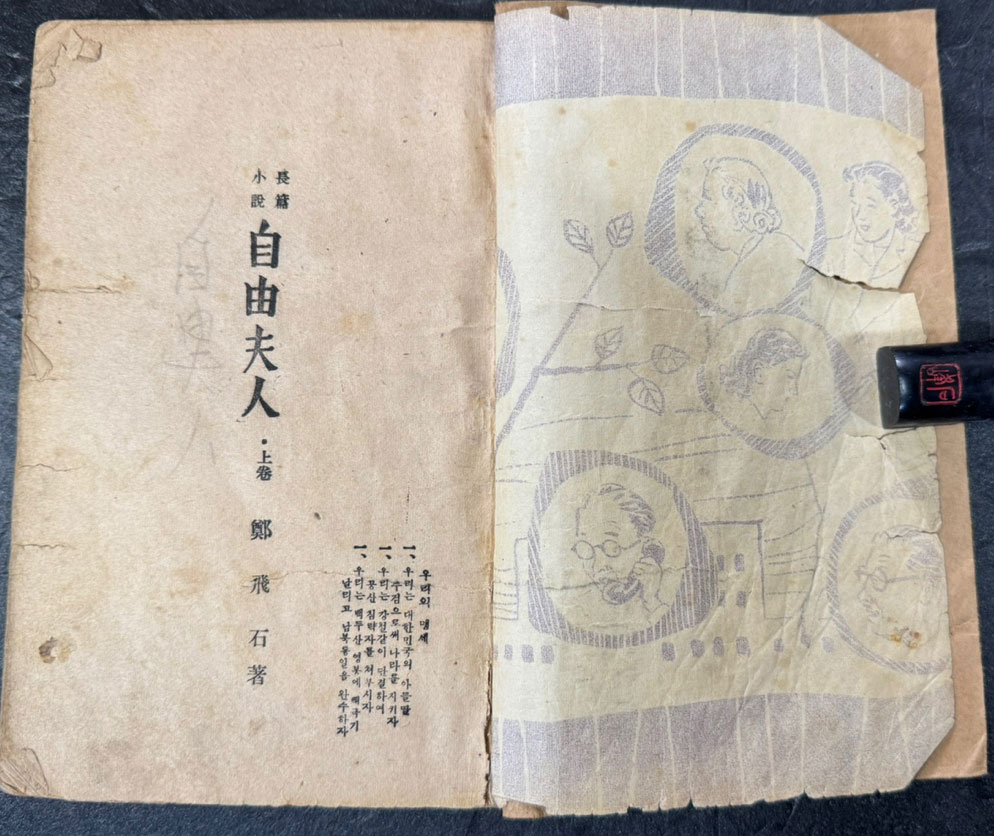 우리의 맹세
一、우리는 대한민국의 아들딸
주검으로써 나라를 지키자
一、우리는 강철같이 단결하여
공산 침략자를 처부시자
一、우리는 백두산 영봉에 태극기
날리고 남북통일을 완수하자
長篇
小說
自由夫人・上卷
鄭飛石著
自由夫人